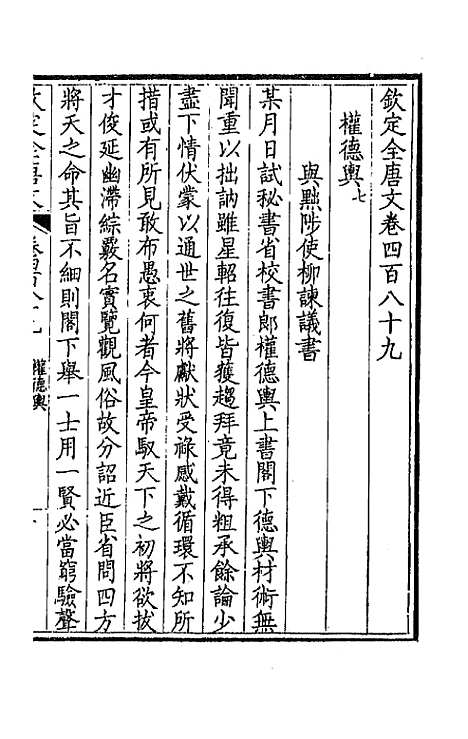 欽定全唐文卷四百八十九
權德輿七
與黜陟使柳諫議書
某月日試秘書省校書郎權德輿上書閣下德輿材術無
聞重以拙訥雖星軺往復皆獲趨拜竟未得粗承餘論少
盡下情伏蒙以通世之舊將獻狀受祿感戴循環不知所
措或有所見敢布愚衷何者今皇帝馭天下之初將欲拔
才俊延幽滯綜覈名實覽觀風俗故分詔近臣省問四方
將天之命其旨不細則閣下舉一士用一賢必當窮驗聲
權德輿